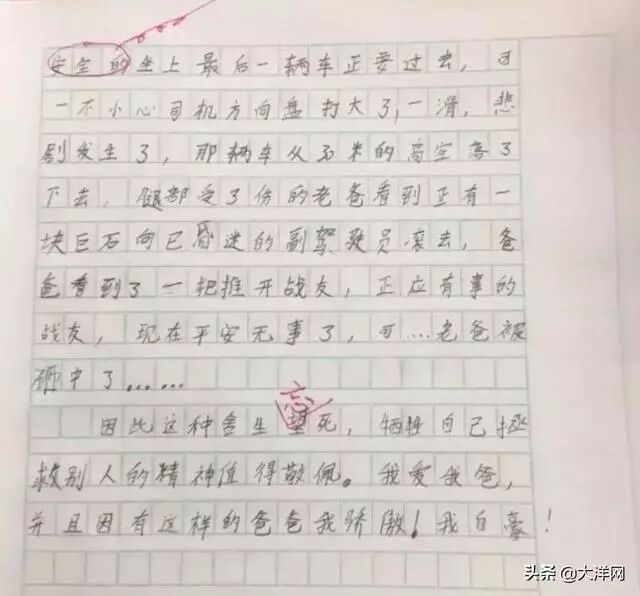 安全的坐上最后一辆车正要过去，可
一不小心司机方向盘打大了，一滑，悲
剧发生了，那辆车从30米的高空落了
下去，腿部受了份的老爸看到正有一
块巨石向已昏迷的副驾驶员滚去，爸
爸看到了一把推开战友，正应有事的
战友，现在平安无事了，可…老爸被
砸中了……
忘
因此这种舍生望死，牺牲自己拯
救别人的精神值得敬佩。我爱我爸，
并且因有这样的爸爸我骄傲！我自豪！
头条 @大洋网